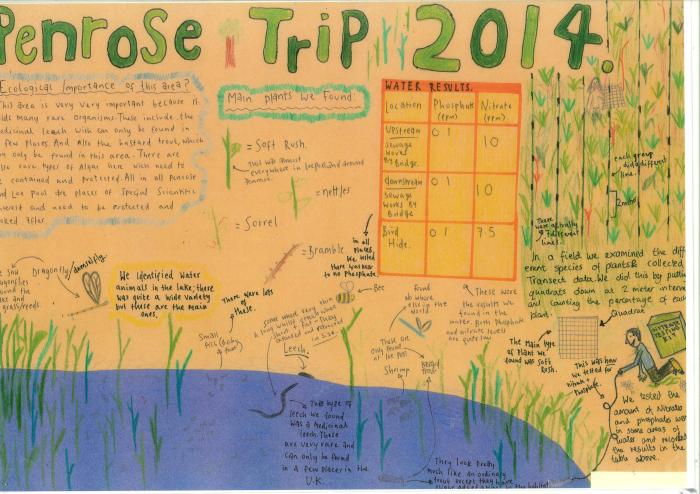 Penrose Trip 2014.
Ecological Importance of this area?
This area is very very important because it
holds many rare organisms. These include the
medicinal leech wich can only be found in
a few places. And Also the bastard trout, which
can only be found in this area. There are
also rare types of Algae here wich need to
be contained and protected. All in all Penrose
and Loe Pool are places of Special Scientific
Interest and need to be protected and
looked after.
Main plants we Found.
= Soft Rush.
This was almost
everywhere in loe pool and around
Penrose.
= nettles
= Sorrel
= Bramble
WATER RESULTS.
Location
Phosphate
(ppm)
Nitrate
(ppm)
Upstream
Sewage
Works
By Bridge.
0 1
10
downstream
Sewage
works By
Bridge
0 1
10
Bird
Hide.
0 1
7 5
in all
places,
we tested
there was
no Phosphate
These were
the results we
found in the
water. Both Phosphate
and nitrate levels
are
each group
did a different
line.
2metres
There were actually
7 different
lines.
In a field we examined the diff
erent species of plants & collected
Transect data. We did this by putting
quadrats down at 2 meter intervals
and counting the percentage of each
plant.
Quadrat
The Main type
of Plant we
found was Soft
Rush.
This was how
we tested for
nitrate &
Phosphate.
We tested the
amount of Nitrates
and phosphates were
in some areas of
water and recorded
the results in the
table above.
We Saw Dragonfly/damselfly.
dragonflies
around the
and
grass/reeds.
We identified Water
animals in the lake, there
was quite a wide variety
but these are the main
ones.
There were lots
of these.
Small
fish
Leech.
Bee
found
no where
else in the
world.
These are
only found
at loe pool
Shrimp
This type of
leech we found
was a Medicinal
leech. These
are very rare and
can only be found
in A few places in the
U.K.
They look pretty
much like an ordinary
trout except they have